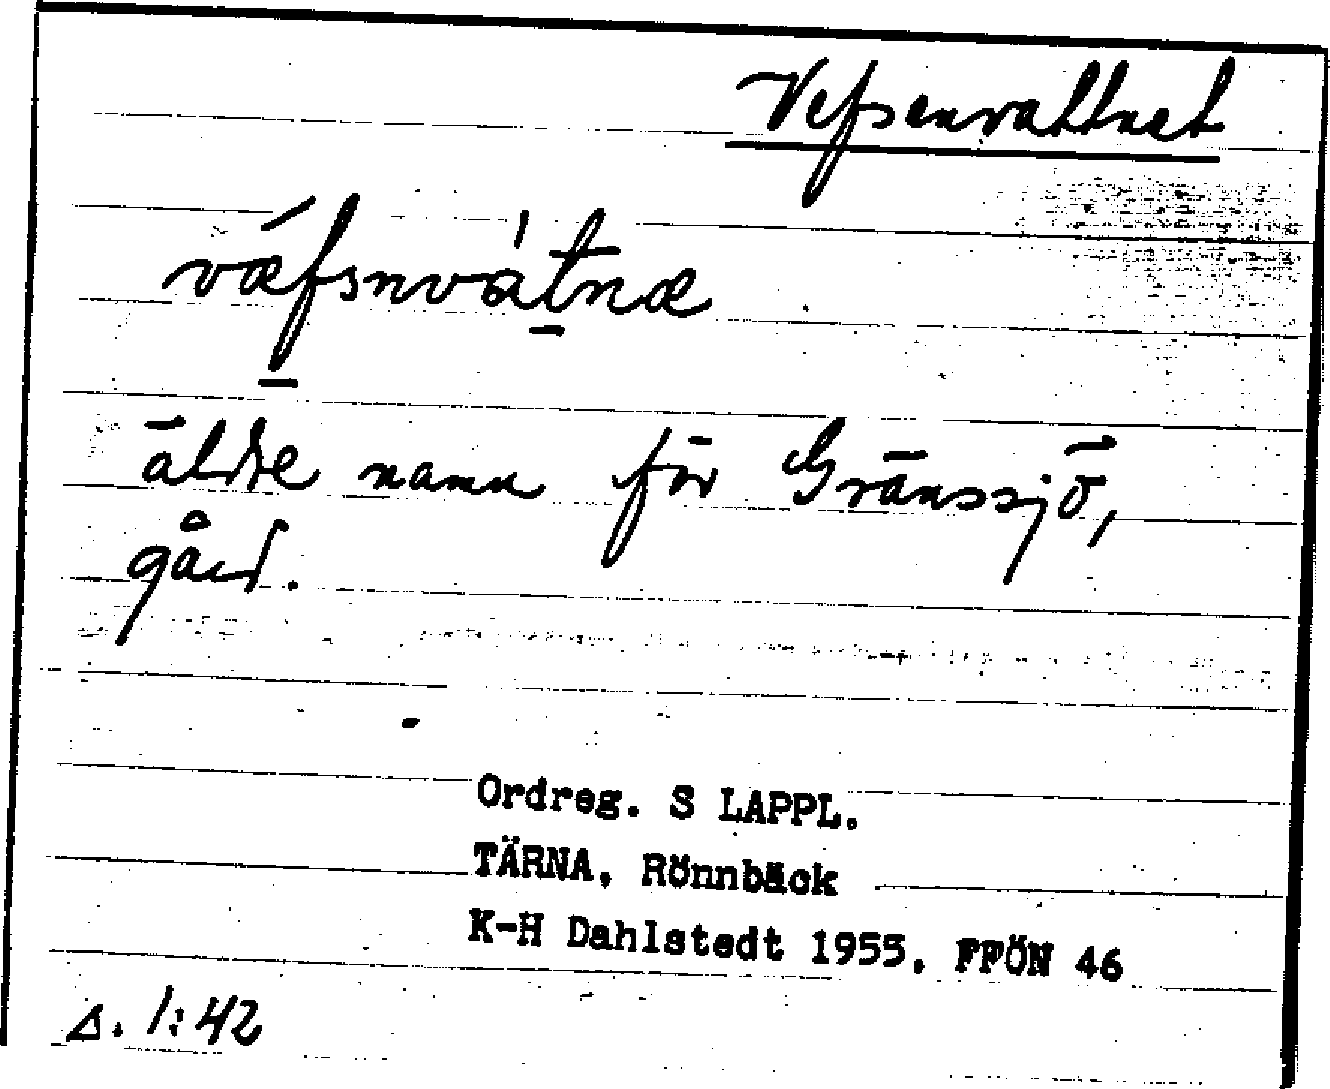 Vefsenvattnet
væ̀fsnvátnæ
äldre namn för Gränssjö,
gård.
Ordreg. S LAPPL.
TÄRNA, Rönnbäck
K-H Dahlstedt 1955. FFÖN 46
s. 1:42